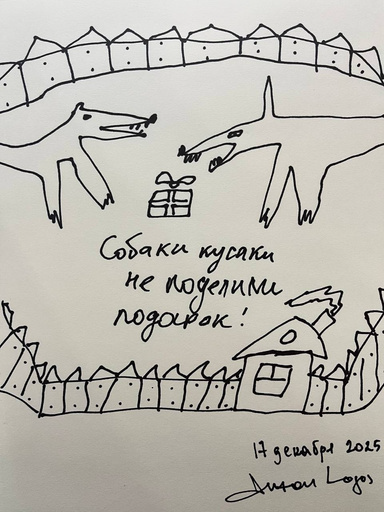 Собаки кусаки
не поделили
подарок!
17 декабря 2025
Антон Logos